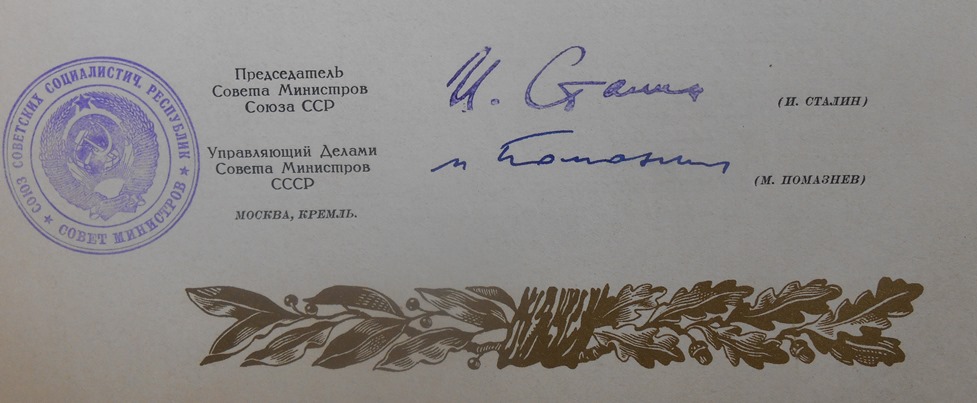 СОЮЗ СОВЕТСКИХ СОЦИАЛИСТИЧ. РЕСПУБЛИК
СОВЕТ МИНИСТРОВ
Председатель
Совета Министров
Союза ССР
И. Сталин
(И. СТАЛИН)
Управляющий Делами
Совета Министров
СССР
М Помазнев
(М. ПОМАЗНЕВ)
МОСКВА, КРЕМЛЬ.